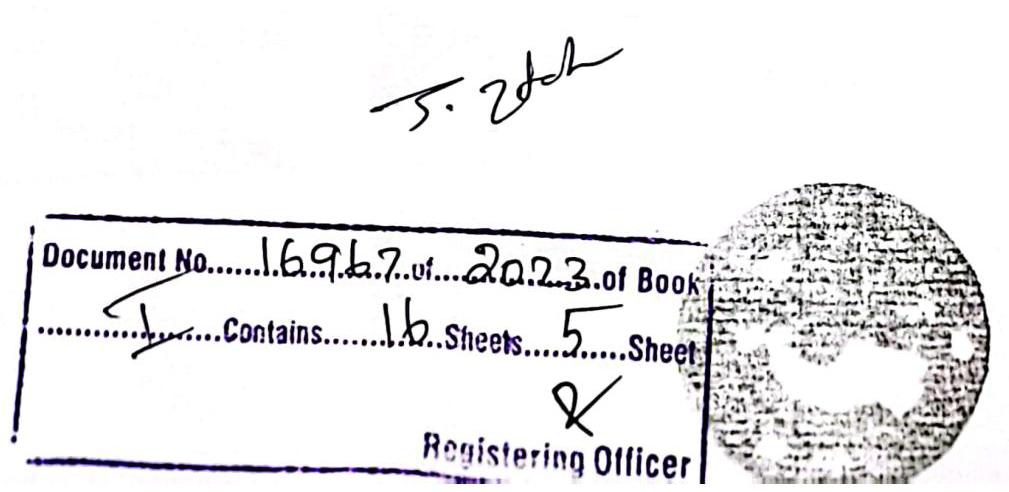 Document No......16967..of....2023.of Book
..............I......Contains.......16..Sheets....5.....Sheet
Registering Officer